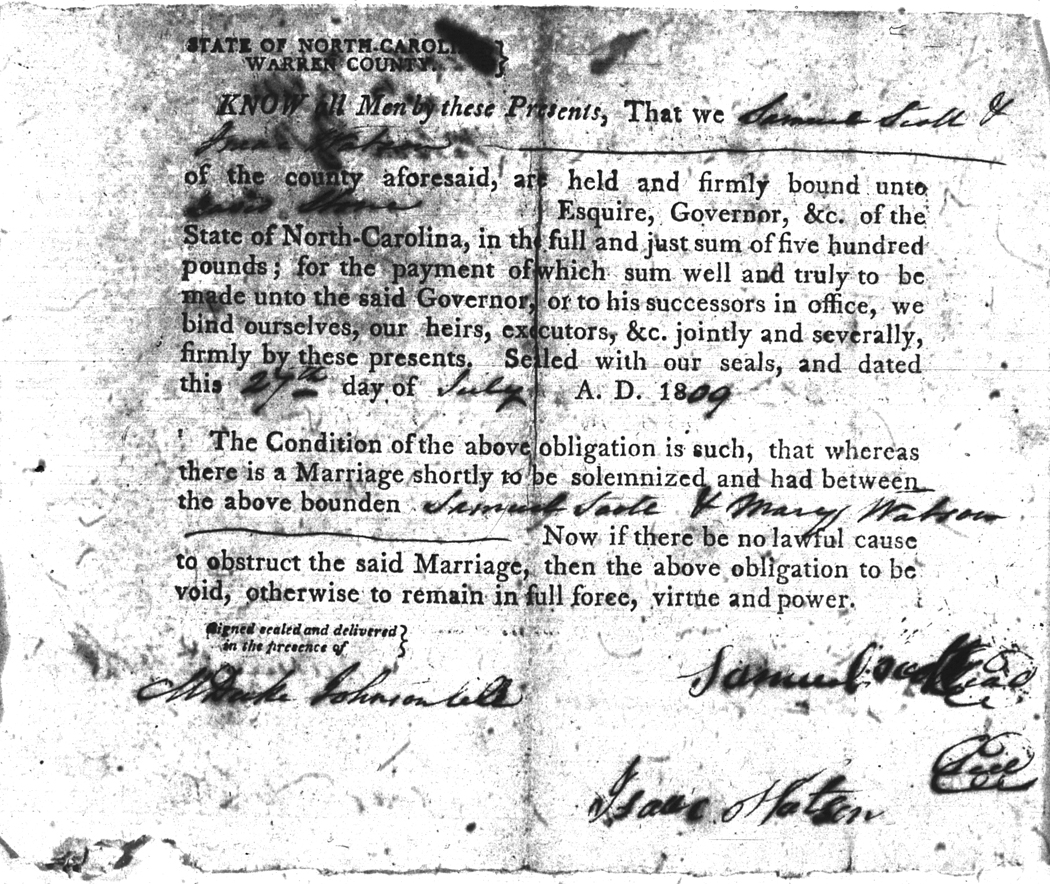 STATE OF NORTH-CAROLINA }
WARREN COUNTY. }
KNOW all Men by these Presents, That we Samuel Scott &
Isaac Watson
of the county aforesaid, are held and firmly bound unto
Stone Esquire, Governor, &c. of the
State of North-Carolina, in the full and just sum of five hundred
pounds; for the payment of which sum well and truly to be
made unto the said Governor, or to his successors in office, we
bind ourselves, our heirs, executors, &c. jointly and severally,
firmly by these presents. Sealed with our seals, and dated
this 27th day of July A. D. 1809
The Condition of the above obligation is such, that whereas
there is a Marriage shortly to be solemnized and had between
the above bounden Samuel Scott & Mary Watson
Now if there be no lawful cause
to obstruct the said Marriage, then the above obligation to be
void, otherwise to remain in full force, virtue and power.
Signed sealed and delivered }
in the presence of }
Samuel Scott Seal
M Duke Johnson
Seal
Isaac Watson